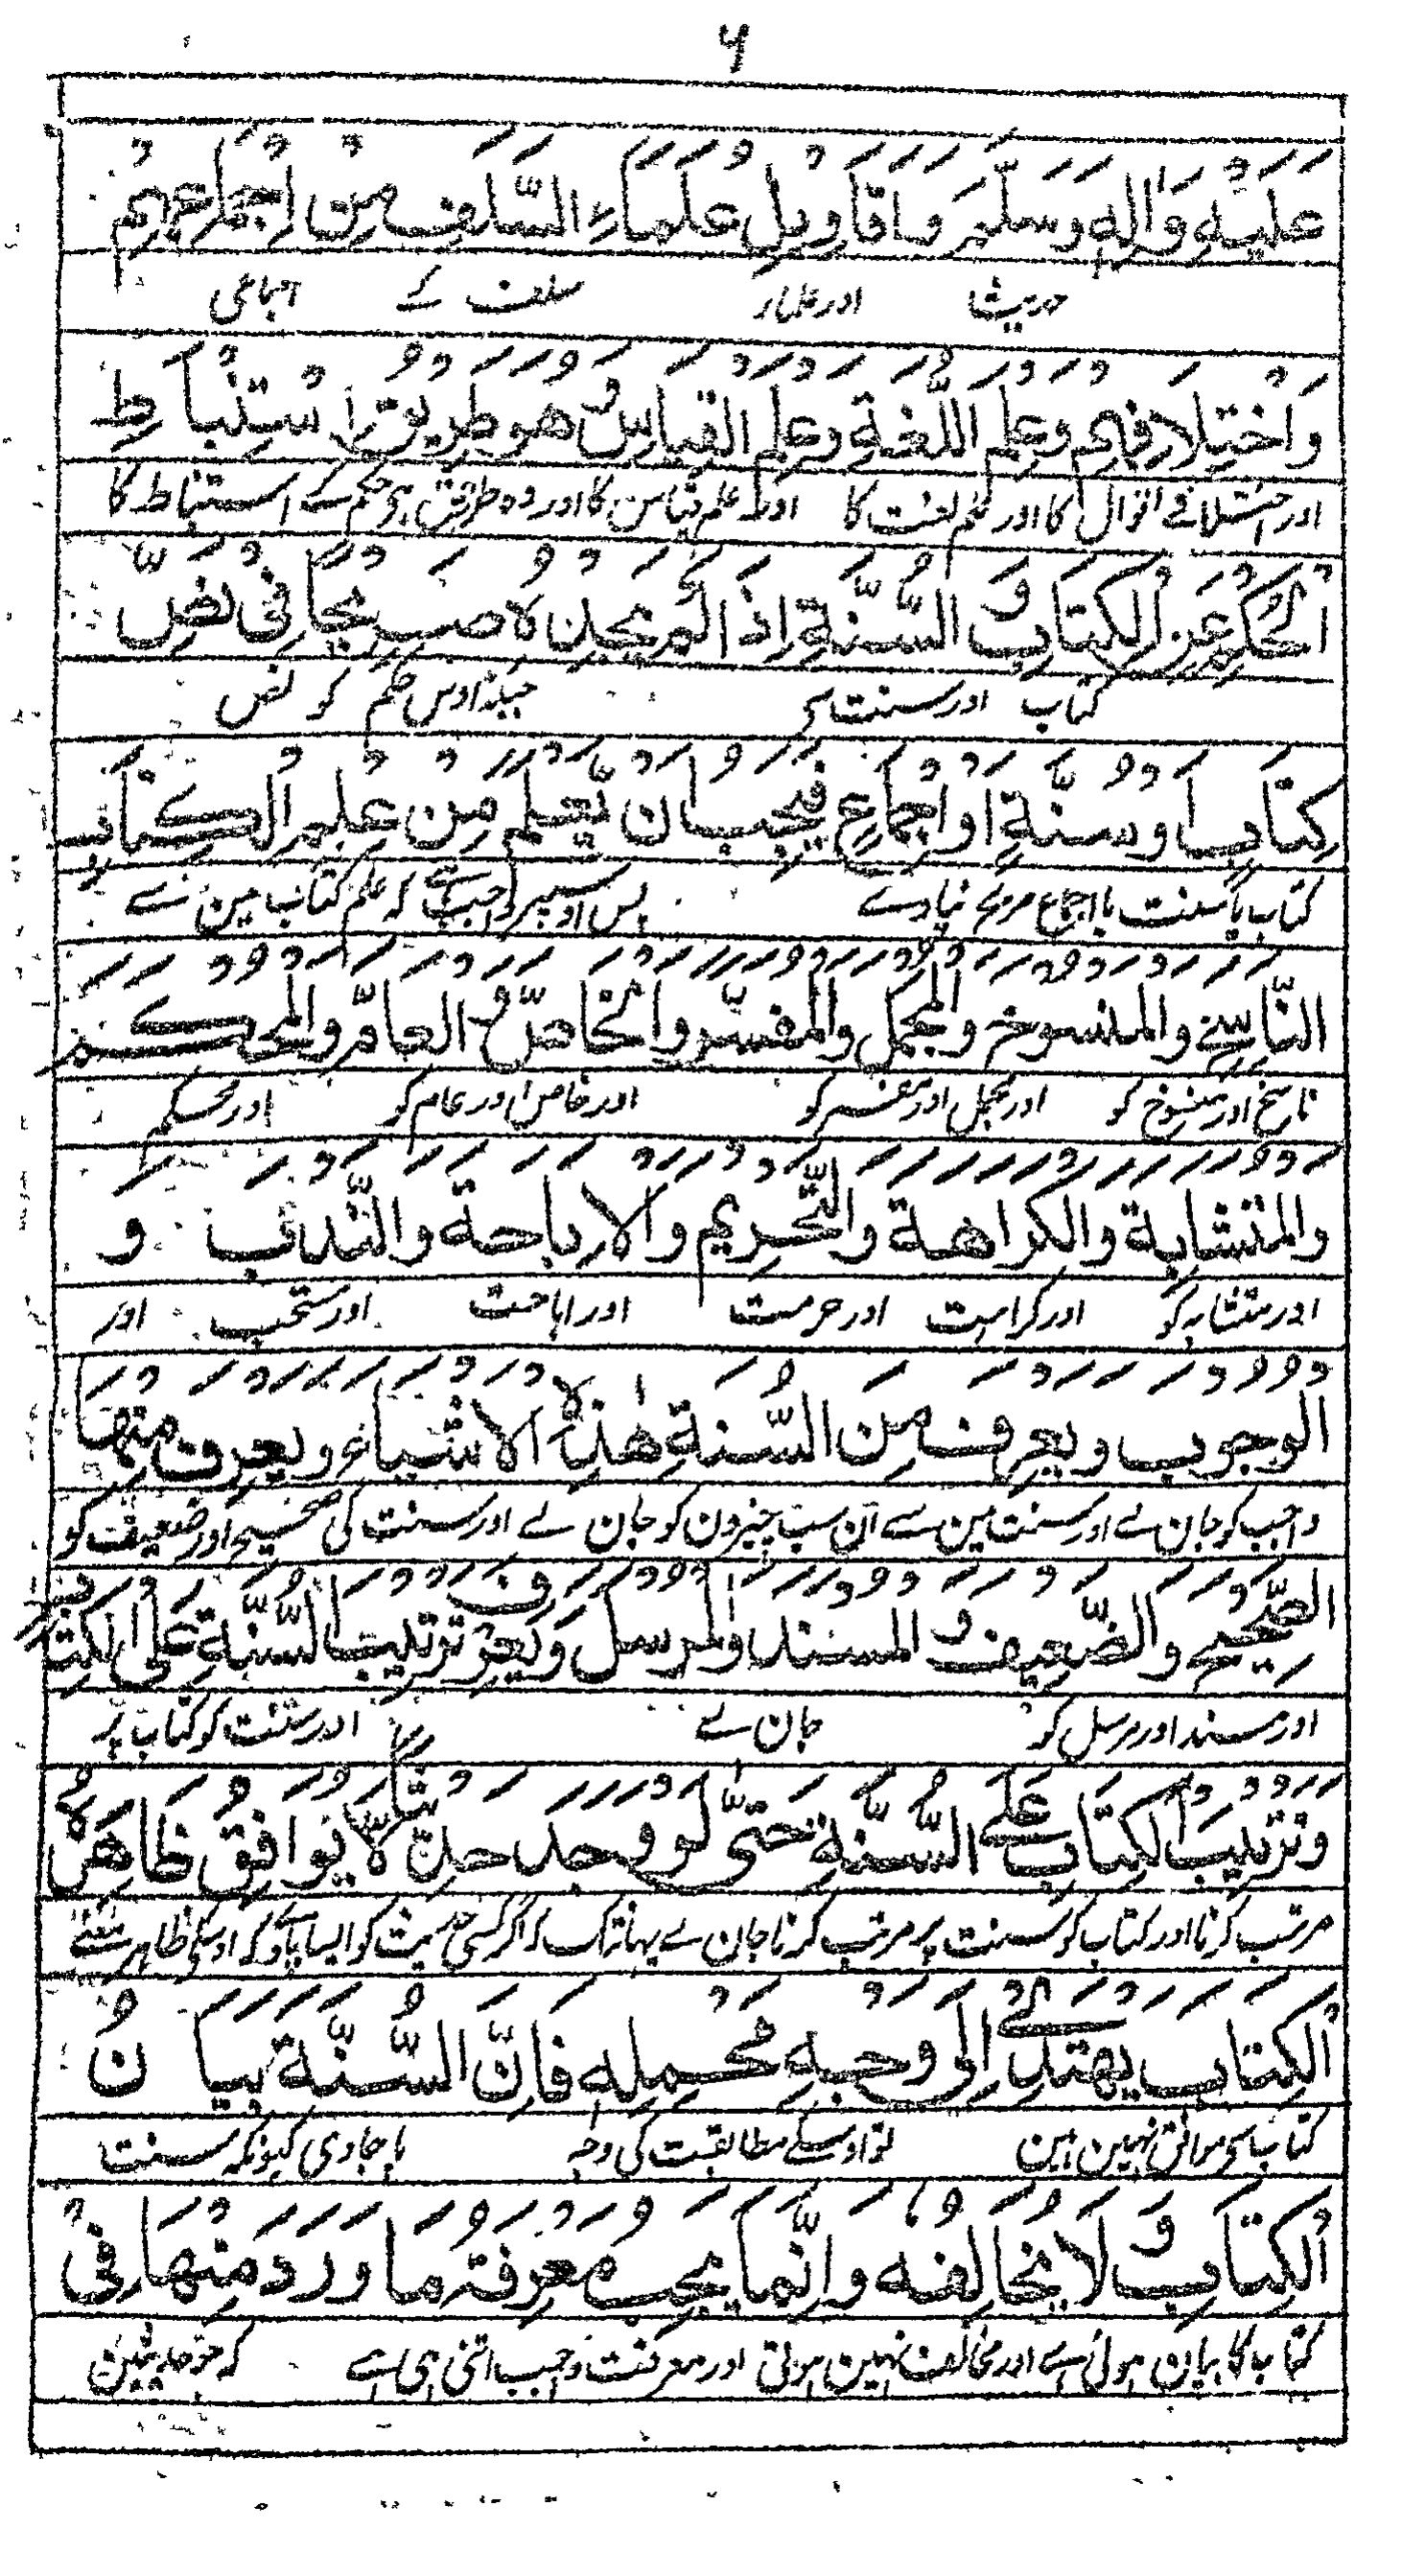 ۶
عَلَيْهِ وَاٰلِهٖ وَسَلَّمَ وَاَقَاوِيْلُ عُلَمَاءِ السَّلَفِ مِنْ اِجْمَاعِهِمْ
حدیث اور علماء سلف کے اجماعی
وَاخْتِلَافِهِمْ وَعِلْمُ اللُّغَةِ وَعِلْمُ الْقِيَاسِ وَهُوَ طَرِيْقُ اسْتِنْبَاطِ
اور اختلافی اقوال کا اور علم لغت کا اور علم قیاس کا اور وہ طریق ہی حکم کے استنباط کا
الْحُكْمِ عَنِ الْكِتَابِ وَ السُّنَّةِ اِذَا لَمْ يَجِدْهُ صَرِيْحًا فِيْ نَصِّ
کتاب اور سنت سی جبکہ اوس حکم کو نص
كِتَابٍ اَوْ سُنَّةٍ اَوْ اِجْمَاعٍ فَيَجِبُ اَنْ يَعْلَمَ مِنْ عِلْمِ الْكِتَابِ
کتاب یا سنت یا اجماع مین نپاوے پس اوسپر واجب ہے کہ علم کتاب مین سے
النَّاسِخَ وَالْمَنْسُوْخَ وَالْمُجْمَلَ وَالْمُفَسَّرَ وَالْخَاصَّ وَ الْعَامَّ وَالْمُحْكَمَ
ناسخ اور منسوخ کو اور مجمل اور مفسر کو اور خاص اور عام کو اور محکم
وَالْمُتَشَابِهَ وَالْكَرَاهَةَ وَالتَّحْرِيْمَ وَالْاِبَاحَةَ وَالنَّدْبَ وَ
اور متشابہ کو اور کراہت اور حرمت اور اباحت اور مستحب اور
الْوُجُوْبَ وَيَعْرِفَ مِنَ السُّنَّةِ هٰذِهِ الْاَشْيَاءَ وَيَعْرِفَ مِنْهَا
واجب کو جان لے اور سنت مین سے ان سب چیزون کو جان لے اور سنت کی صحیح اور ضعیف کو
الصَّحِيْحَ وَالضَّعِيْفَ وَ الْمُسْنَدَ وَالْمُرْسَلَ وَيَعْرِفَ تَرْتِيْبَ السُّنَّةِ عَلَى الْكِتَابِ
اور مسند اور مرسل کو جان لے اور سنت کو کتاب پر
وَتَرْتِيْبَ الْكِتَابِ عَلَى السُّنَّةِ حَتّٰى لَوْ وَجَدَ حَدِيْثًا لَا يُوَافِقُ ظَاهِرُهُ
مرتب کرنا اور کتاب کو سنت پر مرتب کرنا جان لے یہانتک کہ اگر کسی حدیث کو ایسا پاوے کہ اوسکے ظاہر معنے
الْكِتَابَ يَهْتَدِيْ اِلٰى وَجْهِ مَحْمِلِهِ فَاِنَّ السُّنَّةَ بَيَانُ
کتاب سی موافق نہین ہین تو اوسکے مطابقت کی وجہ پا جاوی کیونکہ سنت
الْكِتَابِ وَ لَا يُخَالِفُهُ وَاِنَّمَا يَجِبُ مَعْرِفَةُ مَا وَرَدَ مِنْهَا فِيْ
کتاب کا بیان ہوئی ہے اور مخالف نہین ہوتی اور معرفت واجب اتنی ہی ہے کہ جو حدیثین